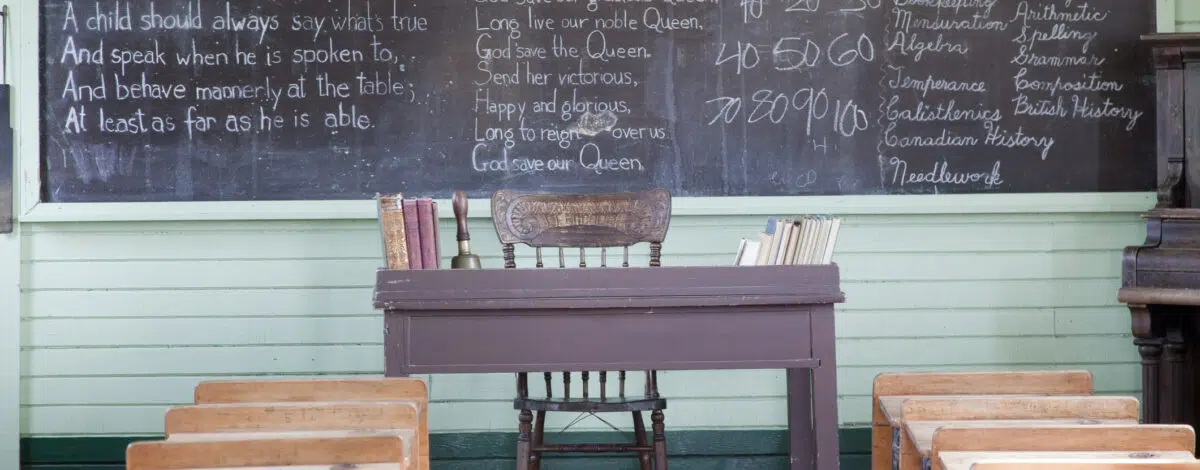 A child should always say what's true
And speak when he is spoken to,
And behave mannerly at the table;
At least as far as he is able.
God save our gracious Queen.
Long live our noble Queen.
God save the Queen.
Send her victorious,
Happy and glorious,
Long to reign over us
God save our Queen.
10 20 30
40 50 60
70 80 90 100
Bookkeeping
Mensuration
Algebra
Temperance
Calisthenics
Canadian History
Needlework
Arithmetic
Spelling
Grammar
Composition
British History